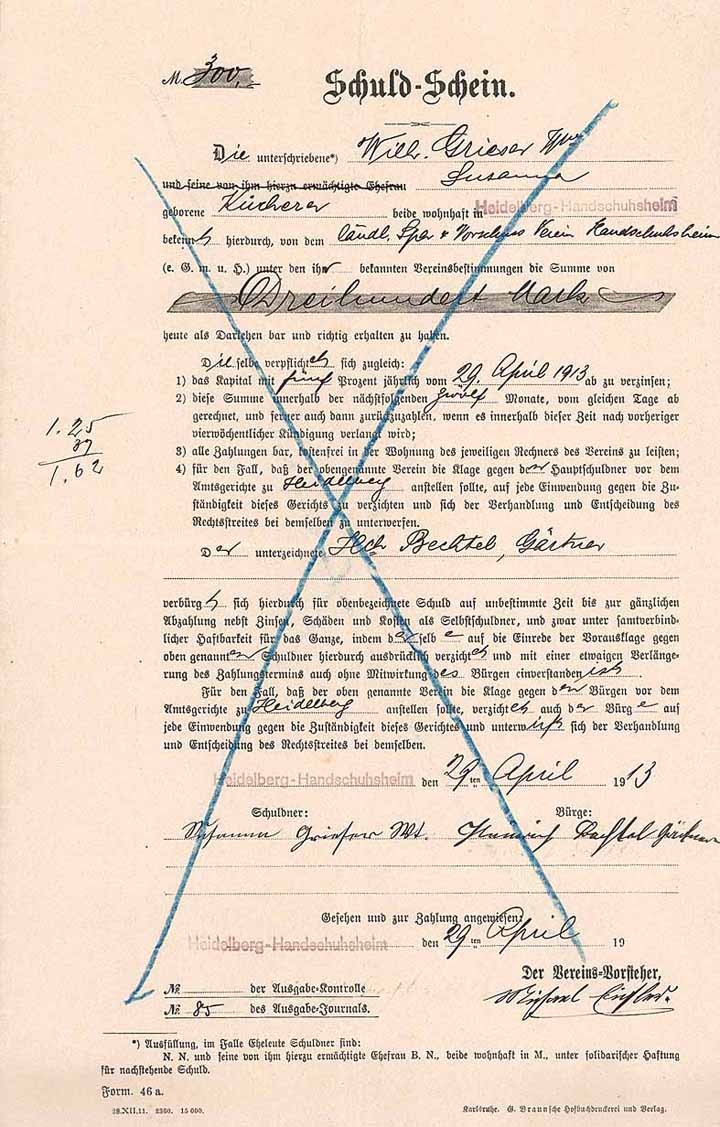 M. 300,
Schuld-Schein.
Die unterschriebene*) Wilh. Grieser Wwe
und seine von ihm hierzu ermächtigte Ehefrau Susanna
geborene Kücherer beide wohnhaft in Heidelberg-Handschuhsheim
bekennt hierdurch, von dem ländl. Spar & Vorschuss Verein Handschuhsheim
(e. G. m. u. H.) unter den ihr bekannten Vereinsbestimmungen die Summe von
Dreihundert Mark
heute als Darlehen bar und richtig erhalten zu haben.
Dieselbe verpflichtet sich zugleich:
1) das Kapital mit fünf Prozent jährlich vom 29. April 1913 ab zu verzinsen;
2) diese Summe innerhalb der nächstfolgenden zwölf Monate, vom gleichen Tage ab
gerechnet, und ferner auch dann zurückzuzahlen, wenn es innerhalb dieser Zeit nach vorheriger
vierwöchentlicher Kündigung verlangt wird;
1.25
37
1.62
3) alle Zahlungen bar, kostenfrei in der Wohnung des jeweiligen Rechners des Vereins zu leisten;
4) für den Fall, daß der obengenannte Verein die Klage gegen den Hauptschuldner vor dem
Amtsgerichte zu Heidelberg anstellen sollte, auf jede Einwendung gegen die Zu-
ständigkeit dieses Gerichts zu verzichten und sich der Verhandlung und Entscheidung des
Rechtsstreites bei demselben zu unterwerfen.
Der unterzeichnete Hch Bechtel, Gärtner
verbürgt sich hierdurch für obenbezeichnete Schuld auf unbestimmte Zeit bis zur gänzlichen
Abzahlung nebst Zinsen, Schäden und Kosten als Selbstschuldner, und zwar unter samtverbind-
licher Haftbarkeit für das Ganze, indem derselbe auf die Einrede der Vorausklage gegen
oben genannten Schuldner hierdurch ausdrücklich verzichtet und mit einer etwaigen Verlänge-
rung des Zahlungstermins auch ohne Mitwirkung des Bürgen einverstanden ist.
Für den Fall, daß der oben genannte Verein die Klage gegen den Bürgen vor dem
Amtsgerichte zu Heidelberg anstellen sollte, verzichtet auch der Bürge auf
jede Einwendung gegen die Zuständigkeit dieses Gerichtes und unterwirft sich der Verhandlung
und Entscheidung des Rechtsstreites bei demselben.
Heidelberg-Handschuhsheim den 29ten April 1913
Schuldner: Bürge:
Susanna Grieser Wt. Heinrich Bechtel Gärtner
Gesehen und zur Zahlung angewiesen:
Heidelberg-Handschuhsheim den 29ten April 19
Der Vereins-Vorsteher,
№ der Ausgabe-Kontrolle
Michael
№ 85 des Ausgabe-Journals.
*) Ausfüllung, im Falle Eheleute Schuldner sind:
N. N. und seine von ihm hierzu ermächtigte Ehefrau B. N., beide wohnhaft in M., unter solidarischer Haftung
für nachstehende Schuld.
Form. 46 a.
28.XII.11. 2360. 15 000.
Karlsruhe. G. Braunsche Hofbuchdruckerei und Verlag.